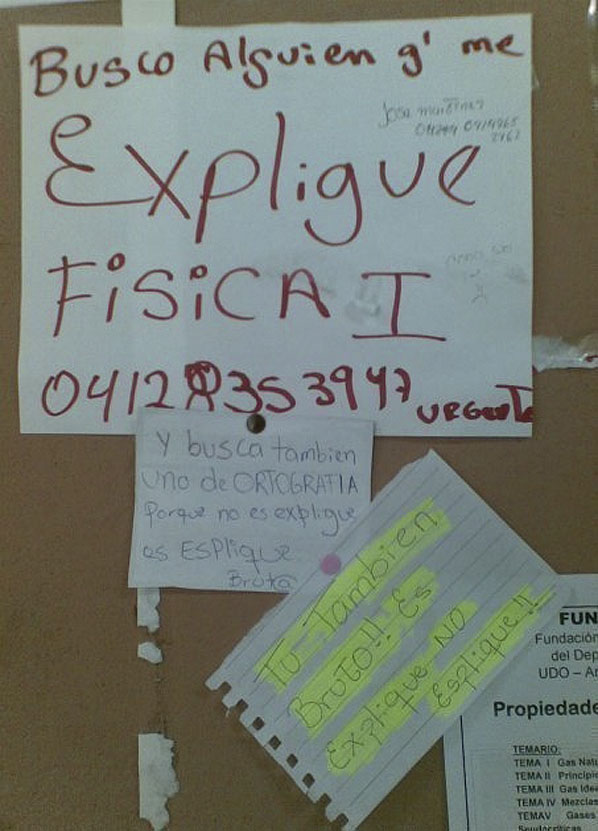 Busco Alguien q' me
Explique
FÍSICA I
0412 8353947 URGENTE
Y busca tambien
uno de ORTOGRAFIA
Porque no es explique
es ESPlique
Bruta
Tu Tambien
BruTo!! Es
Explique NO
Esplique!!
FUN
Fundación
del Dep
UDO – An
Propiedade
TEMARIO:
TEMA I Gas Natu
TEMA II Principio
TEMA III Gas Idea
TEMA IV Mezclas
TEMAV Gases
Seudocríticas